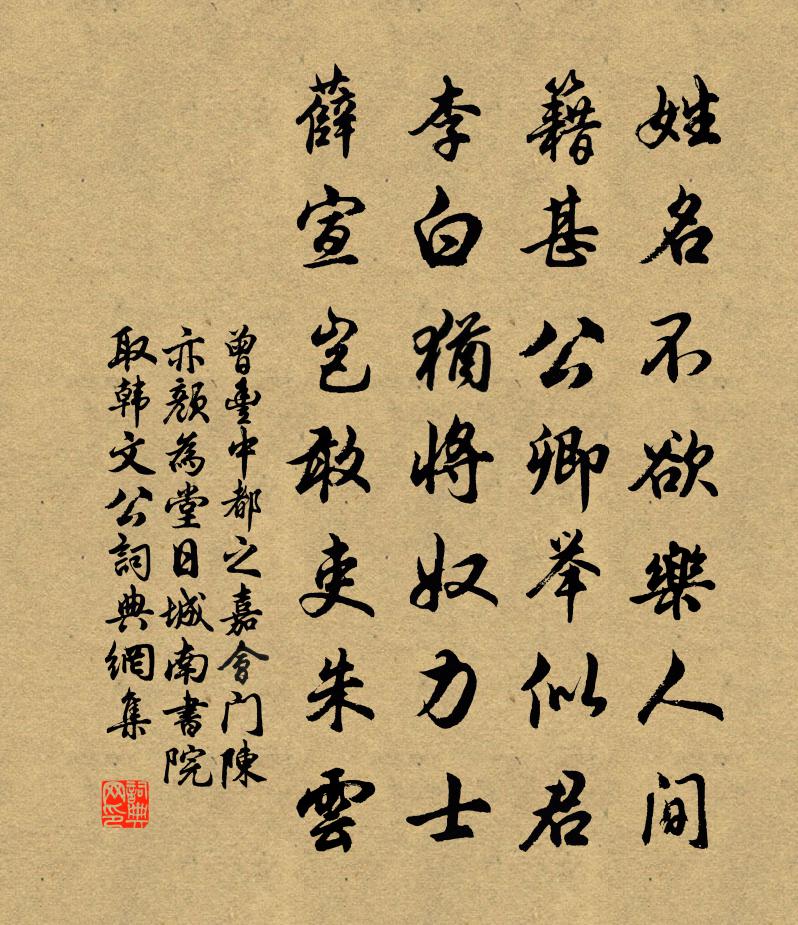 姓名不欲樂人间
籍甚公卿举似君
李白猶将奴力士
薛宣岂敢吏朱雲
曾豐中都之嘉會门陳
亦颜為堂日城南書院
取韩文公詞典網集
詞典网印